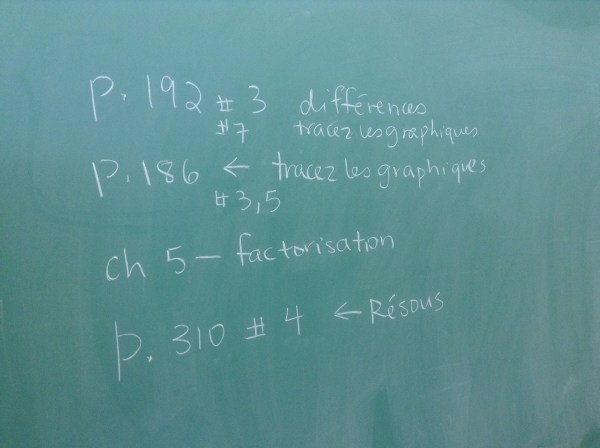 p. 192 # 3 différences
#7 tracez les graphiques
p. 186 ← tracez les graphiques
# 3,5
ch 5 – factorisation
p. 310 # 4 ← Résous